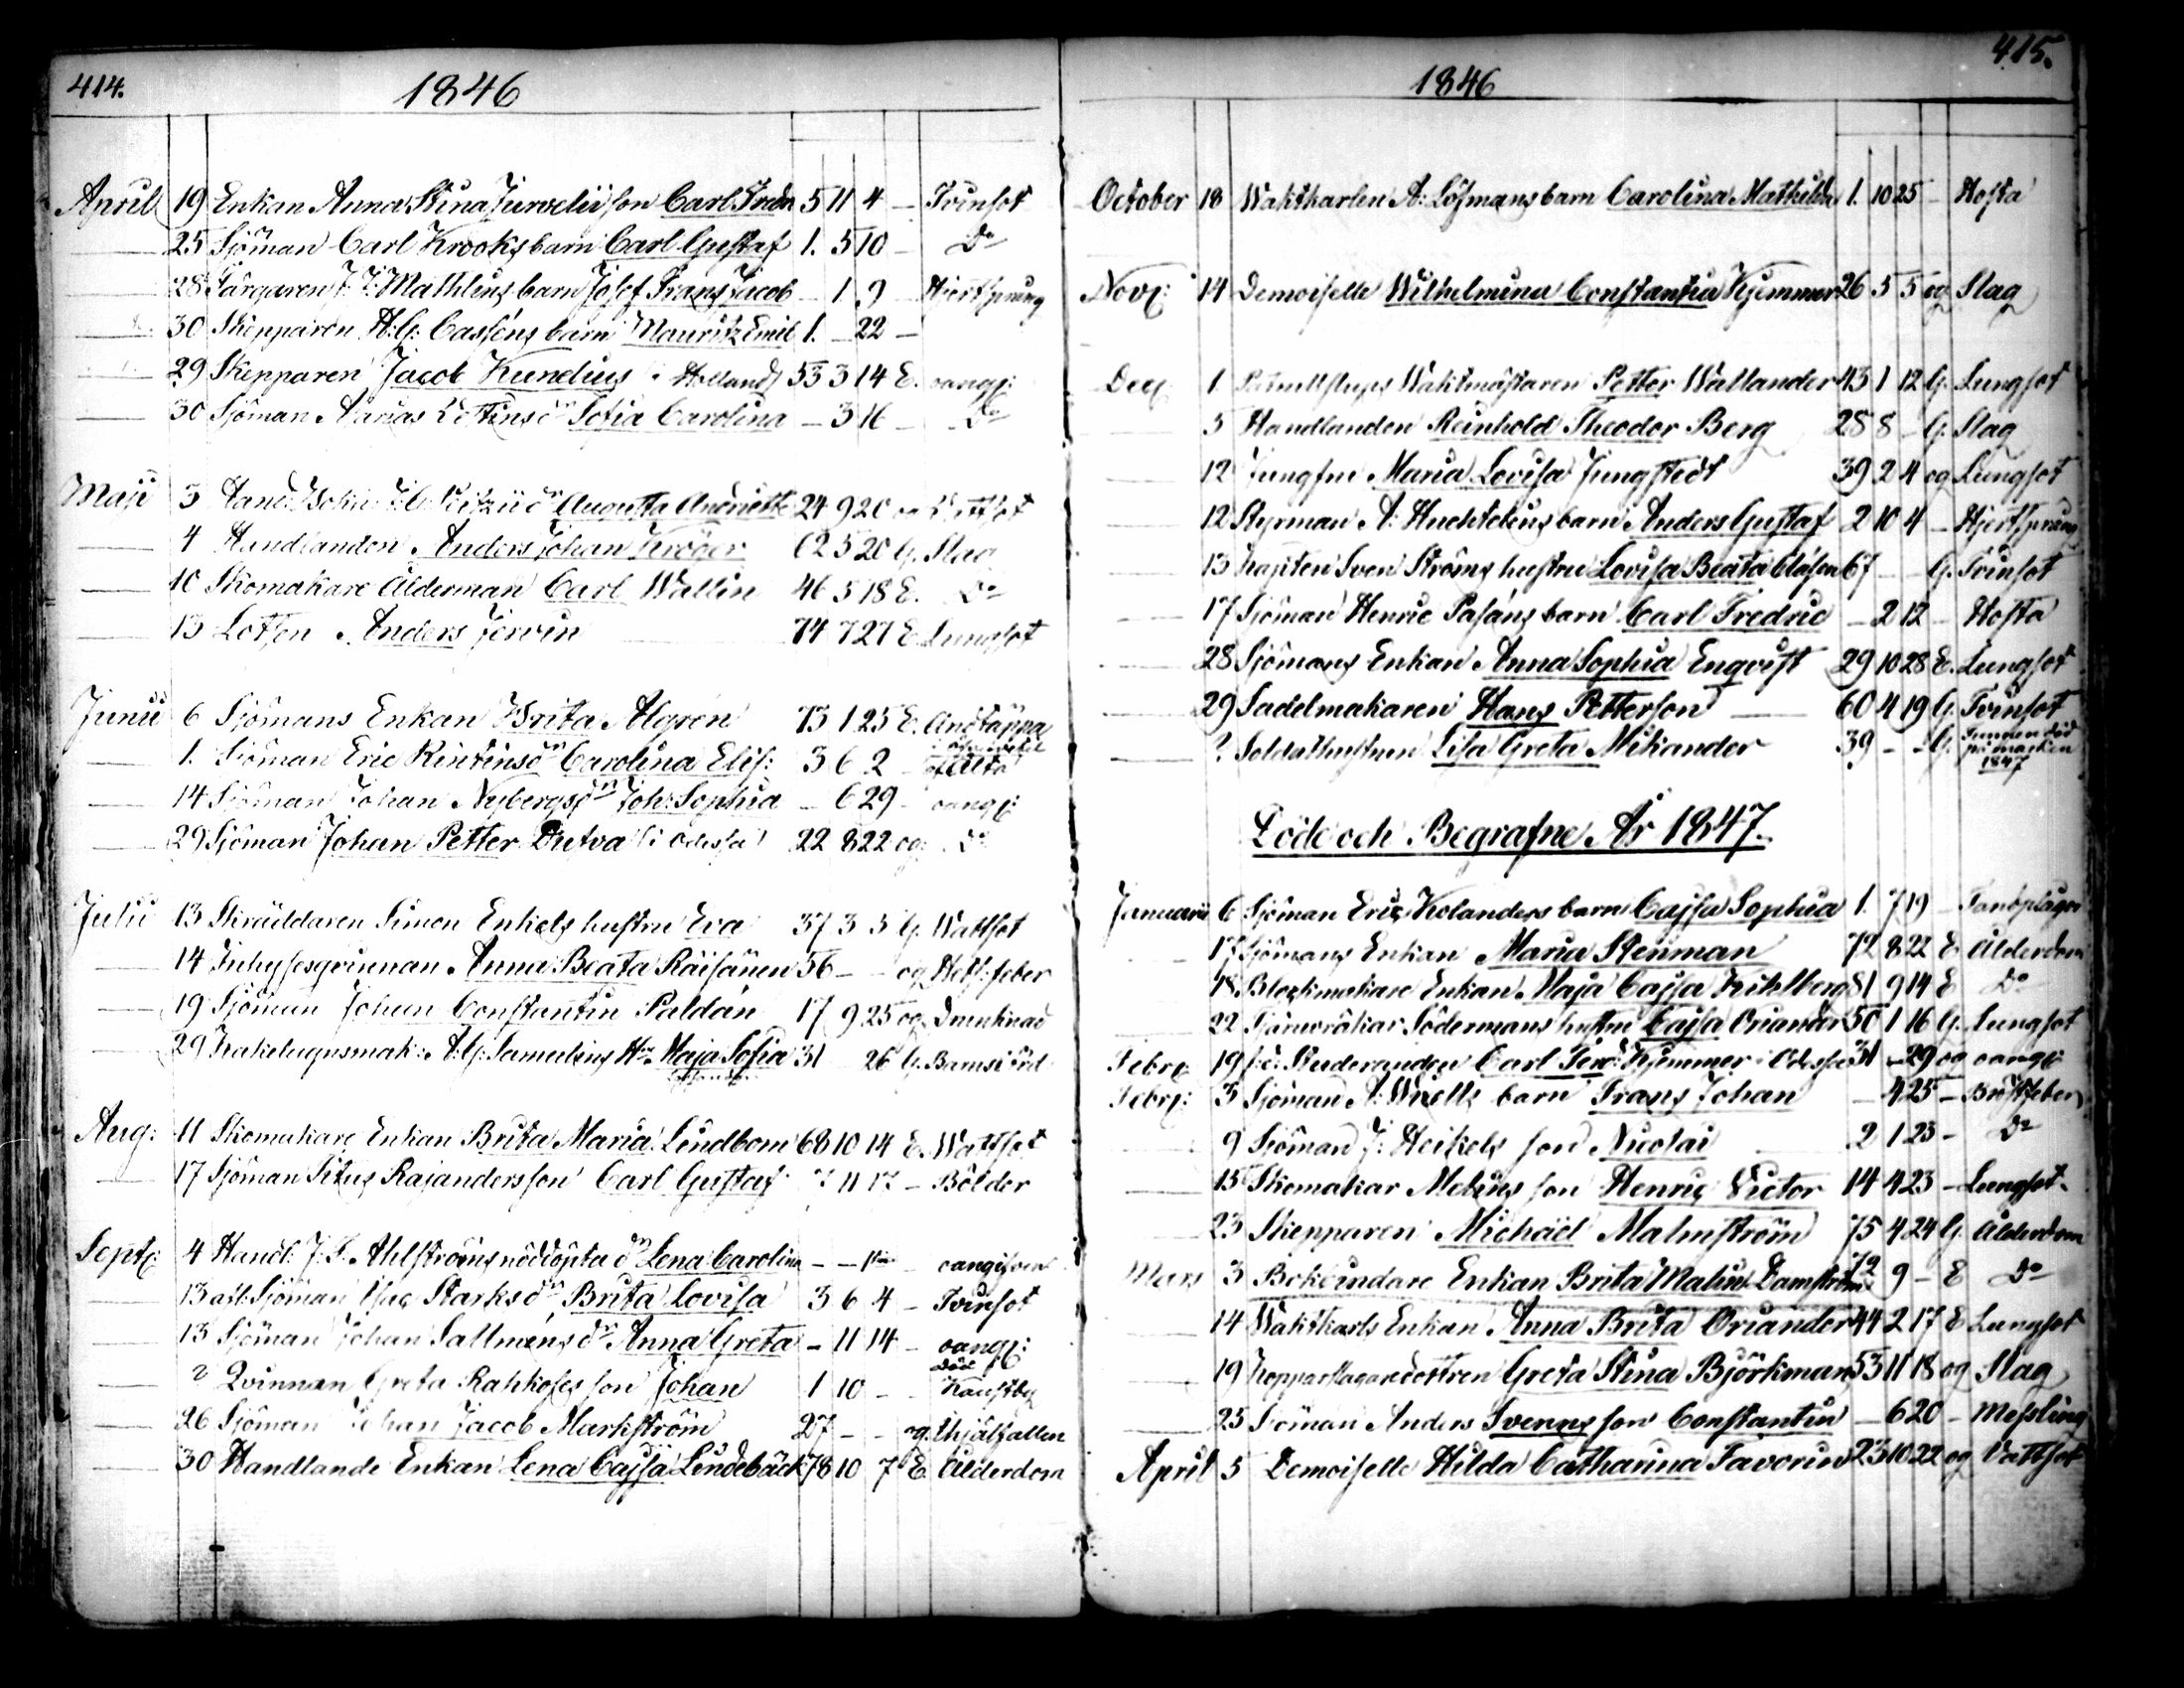 414.
1846
April 19 Enkan Anna Stina Jurvelii son Carl Fredr 5 11 4 — Tvinsot
25 Sjöman Carl Krooks barn Carl Gustaf 1. 5 10 — Do
28 Färgaren J. J. Mathlins barn Josef Frans Jacob — 1 9 — Hjertsprung
30 Skepparen A. G. Casséns barn Mauritz Emil 1. — 22 —
29 Skepparen Jacob Kunelius i Holland 53 3 14 E. oangf:
30 Sjöman dr Sofia Carolina — 3 16 — Do
Maji 3 dr Augusta Andriette 24 9 20 og
4 Handlanden Anders Johan Kröger 62 5 20 G. Slag
10 Skomakare Ålderman Carl Wallin 46 5 18 E. Do
13 Lotsen Anders Jervin 74 7 27 E. Lungsot
Junii 6 Sjömans Enkan Brita Algren 73 1 25 E. Andtäppa
1. Sjöman Eric dr Carolina Elis: 3 6 2 —
14 Sjöman Johan Nybergs dr Joh: Sophia — 6 29 — oangf:
29 Sjöman Johan Petter Dutva (i Odessa) 22 8 22 og: Do
Julii 13 Skräddaren Simon Enkels hustru Eva 37 3 5 G. Wattsot
14 Inhysesqvinnan Anna Beata Räisänen 56 — — og Het: feber
19 Sjöman Johan Constantin Paldán 17 9 25 og Drunknad
29 Kakelugnsmak: A. G. Samulins Hu Maja Sofia 31 — 26 G. Barnsbörd
Aug: 11 Skomakare Enkan Brita Maria Lindbom 68 10 14 E. Wattsot
17 Sjöman Titus Rajanders son Carl Gustaf 7 11 17 — Bölder
Septr: 4 Handl: J. L. Ahlströms nöddöpta dr Lena Carolina — — 1 — oangifven
13 afl: Sjöman Isac Starks dr Brita Lovisa 3 6 4 — Tvinsot
13 Sjöman Johan Sallméns dr Anna Greta — 11 14 — oangf:
? Qvinnan Greta Rahkoses son Johan 1 10 — — död i Kaustby
26 Sjöman Johan Jacob Markström 27 — — og. ihjälfallen
30 Handlande Enkan Lena Cajsa Lindebäck 78 10 7 E. Ålderdom
415.
1846
October 18 Waktkarlen A: Löfmans barn Carolina Mathilda 1. 10 25 — Hosta
Novr: 14 Demoiselle Wilhelmina Constantia Kjemmer 26 5 5 og Slag
Decr 1 Waktmästaren Petter Wallander 43 1 12 G. Lungsot
5 Handlanden Reinhold Theodor Berg 28 8 — G. Slag
12 Jungfru Maria Lovisa Jungstedt 39 2 4 og Lungsot
12 Styrman A. barn Anders Gustaf 2 10 4 — Hjertsprung
13 Kapiten Sven Ströms hustru Lovisa Beata Clasén 67 — — G. Tvinsot
17 Sjöman Henric Pasáns barn Carl Fredric — 2 12 — Hosta
28 Sjömans Enkan Anna Sophia Enqvist 29 10 28 E. Lungsot
29 Sadelmakaren Hans Petterson — 60 4 19 G. Tvinsot
? Soldathustrun Lisa Greta Mikander 39 — — G. Funnen död på marken 1847
Döde och Begrafne År 1847.
Januarii 6 Sjöman Eric Kolanders barn Cajsa Sophia 1. 7 19 — Tandplågor
17 Sjömans Enkan Maria Stenman 72 8 22 E Ålderdom
18. Blockmakare Enkan Maja Cajsa Kihlberg 81 9 14 E Do
22 Södermans hustru Cajsa Oriander 50 1 16 G. Lungsot
Febr: 19 f.d. Studeranden Carl Ferd: Kjemmer i Odessa 31 — 29 og oangf:
Febr: 3 Sjöman A: barn Frans Johan — 4 25 — Bröstfeber
9 Sjöman J: Heikels son Nicolai 2 1 23 — Do
15 Skomakar Melins son Henric Victor 14 4 23 — Lungsot
23 Skepparen Michaël Malmström 75 4 24 G. Ålderdom
Mars 3 Enkan Brita Malin Damström 72 9 — E Do
14 Waktkarls Enkan Anna Brita Oriander 44 2 17 E Lungsot
19 Kopparslagaredottren Greta Stina Björkman 53 11 18 og Slag
25 Sjöman Anders Svenns son Constantin — 6 20 — Messling
April 5 Demoiselle Hilda Catharina Favorin 23 10 22 og Vattsot